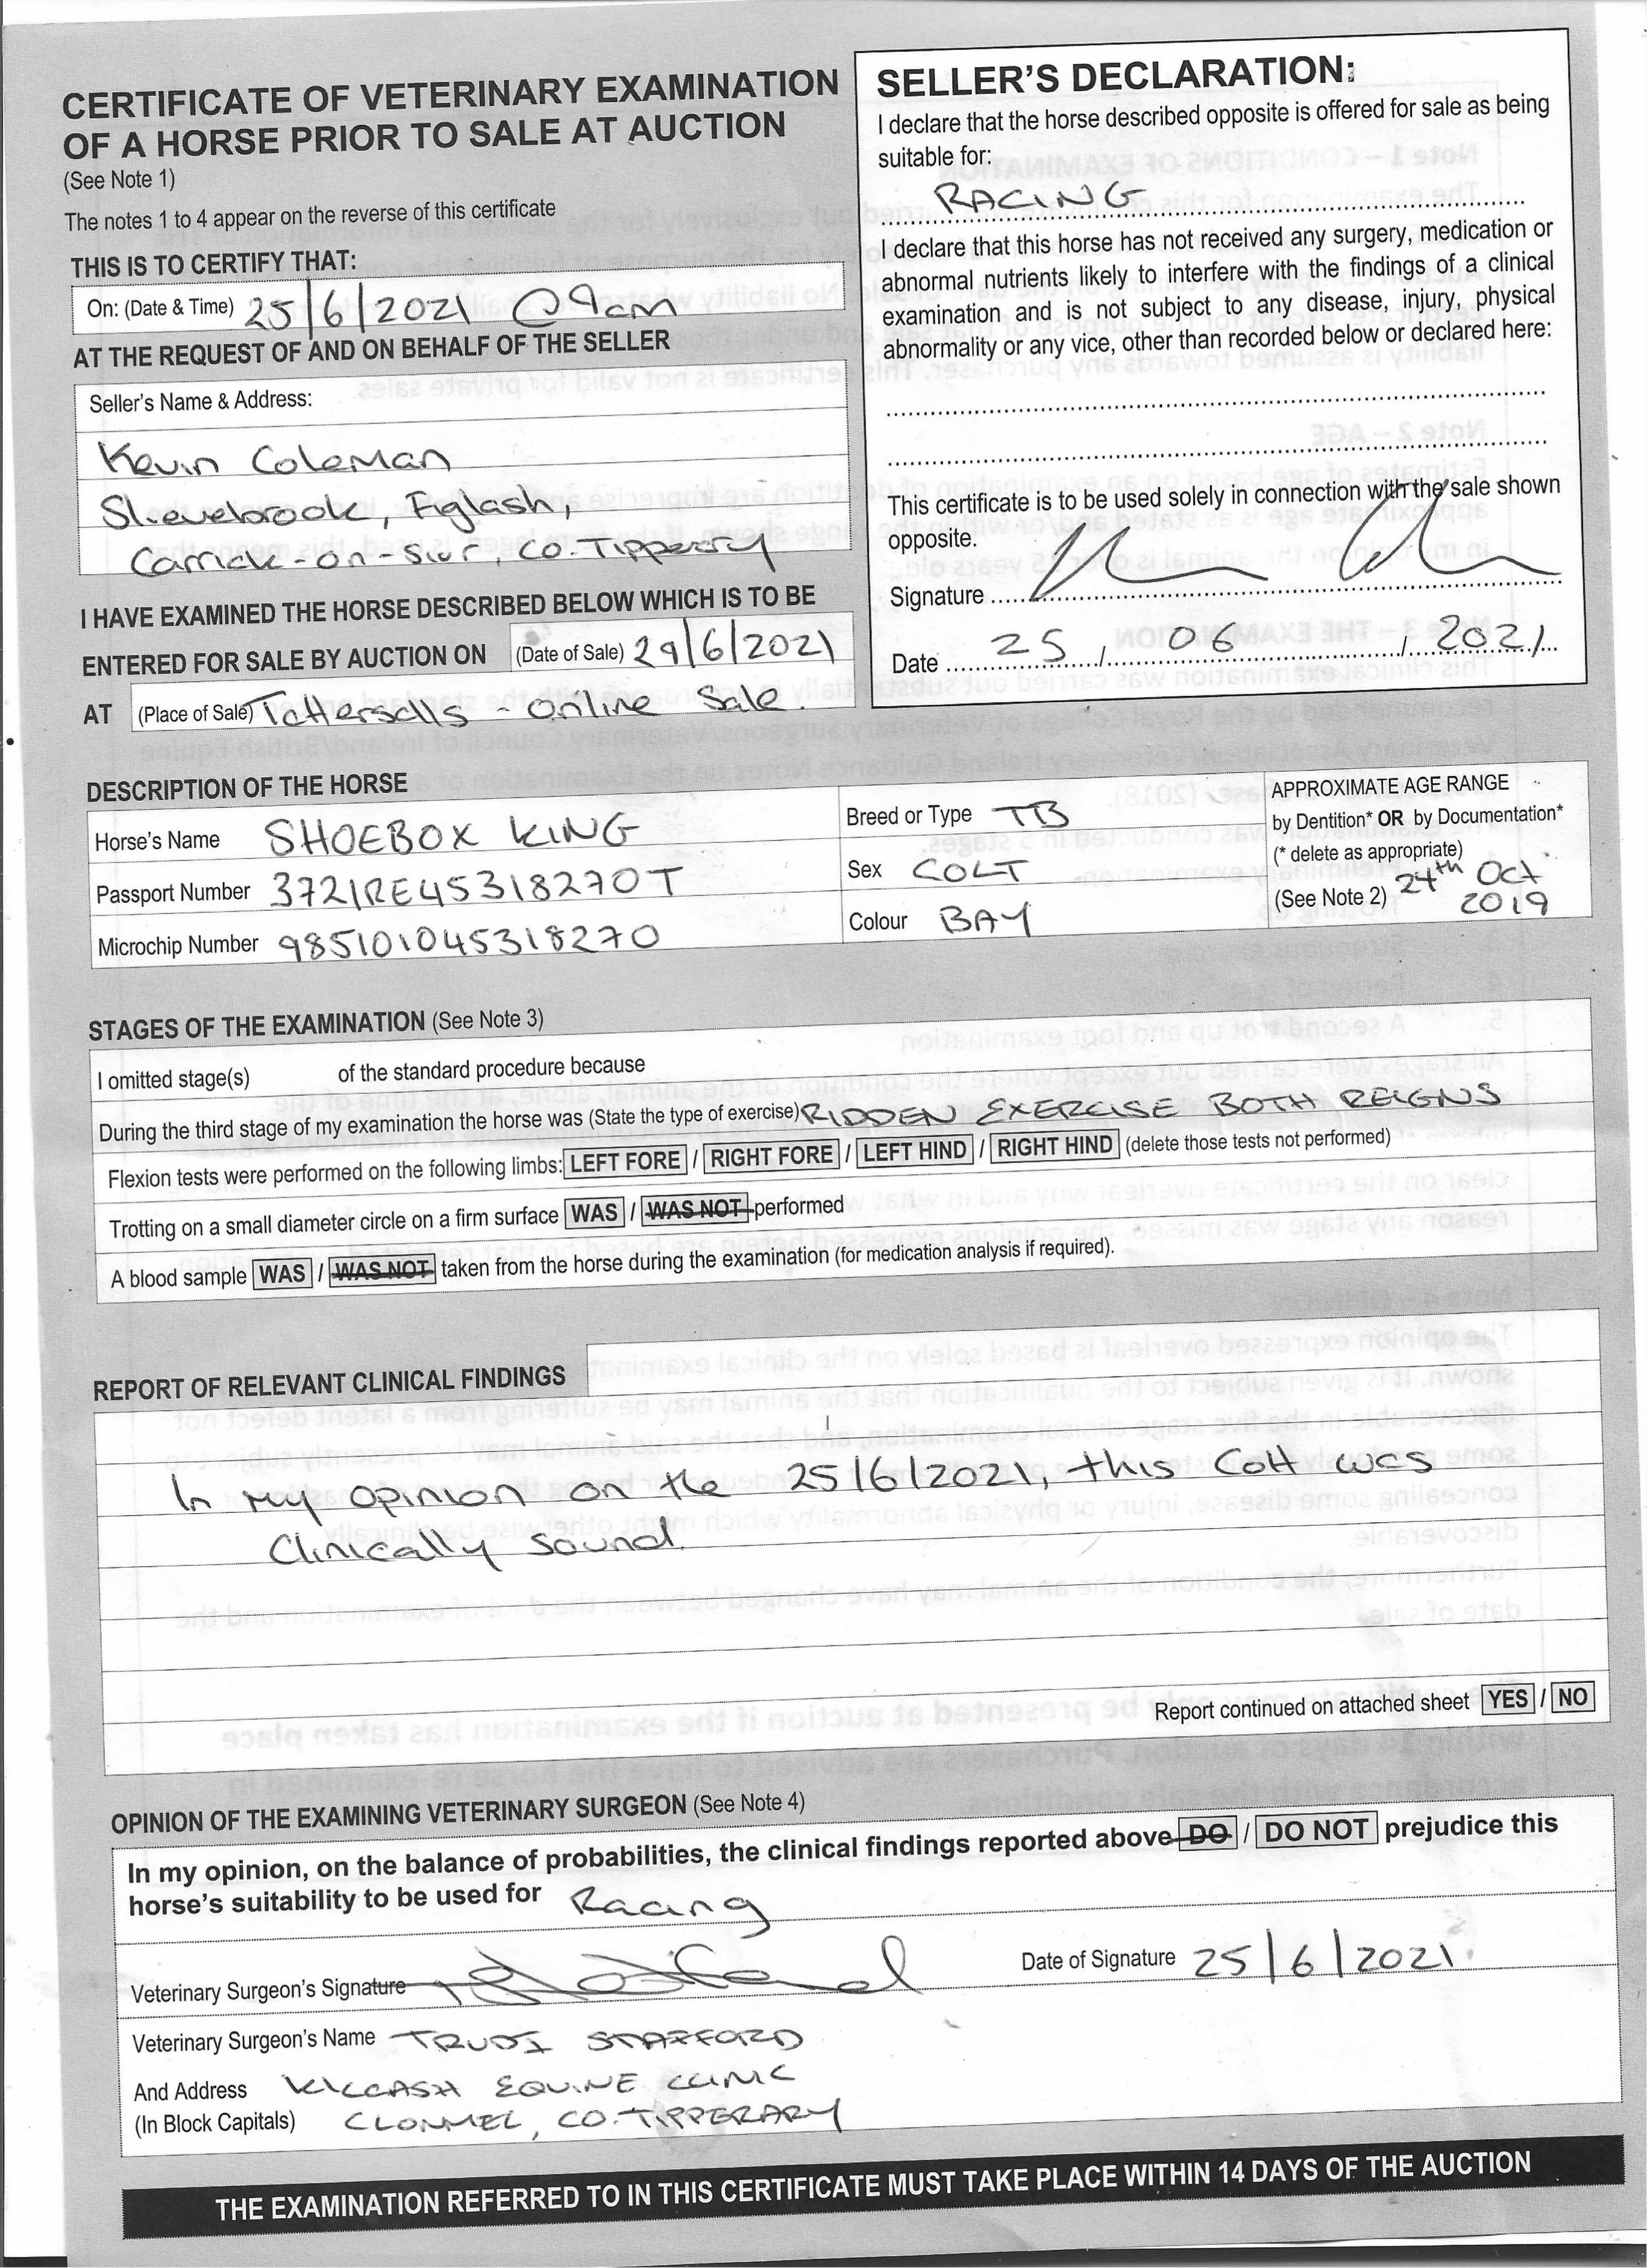 CERTIFICATE OF VETERINARY EXAMINATION
OF A HORSE PRIOR TO SALE AT AUCTION
(See Note 1)
The notes 1 to 4 appear on the reverse of this certificate
THIS IS TO CERTIFY THAT:
On: (Date & Time) 25/6/2021 @ 9am
AT THE REQUEST OF AND ON BEHALF OF THE SELLER
Seller's Name & Address:
Kevin Coleman
Slievebrook, Figlash,
Carrick-on-Siur, Co. Tipperary
I HAVE EXAMINED THE HORSE DESCRIBED BELOW WHICH IS TO BE
ENTERED FOR SALE BY AUCTION ON (Date of Sale) 29/6/2021
AT (Place of Sale) Tattersalls - Online Sale.
SELLER'S DECLARATION:
I declare that the horse described opposite is offered for sale as being
suitable for:
RACING
I declare that this horse has not received any surgery, medication or
abnormal nutrients likely to interfere with the findings of a clinical
examination and is not subject to any disease, injury, physical
abnormality or any vice, other than recorded below or declared here:
This certificate is to be used solely in connection with the sale shown
opposite.
Signature
Date 25 / 06 / 2021
DESCRIPTION OF THE HORSE
Horse's Name SHOEBOX KING
Passport Number 372IRE45318270T
Microchip Number 985101045318270
Breed or Type TB
Sex COLT
Colour BAY
APPROXIMATE AGE RANGE
by Dentition* OR by Documentation*
(* delete as appropriate)
(See Note 2) 24th Oct
2019
STAGES OF THE EXAMINATION (See Note 3)
I omitted stage(s) of the standard procedure because
During the third stage of my examination the horse was (State the type of exercise) RIDDEN EXERCISE BOTH REIGNS
Flexion tests were performed on the following limbs: LEFT FORE / RIGHT FORE / LEFT HIND / RIGHT HIND (delete those tests not performed)
Trotting on a small diameter circle on a firm surface WAS / WAS NOT performed
A blood sample WAS / WAS NOT taken from the horse during the examination (for medication analysis if required).
REPORT OF RELEVANT CLINICAL FINDINGS
In my opinion on the 25/6/2021, this Colt was
Clinically sound.
Report continued on attached sheet YES / NO
OPINION OF THE EXAMINING VETERINARY SURGEON (See Note 4)
In my opinion, on the balance of probabilities, the clinical findings reported above DO / DO NOT prejudice this
horse's suitability to be used for Racing
Veterinary Surgeon's Signature
Date of Signature 25/6/2021.
Veterinary Surgeon's Name TRUDI STAFFORD
And Address KILCASH EQUINE CLINIC
(In Block Capitals) CLONMEL, CO. TIPPERARY
THE EXAMINATION REFERRED TO IN THIS CERTIFICATE MUST TAKE PLACE WITHIN 14 DAYS OF THE AUCTION